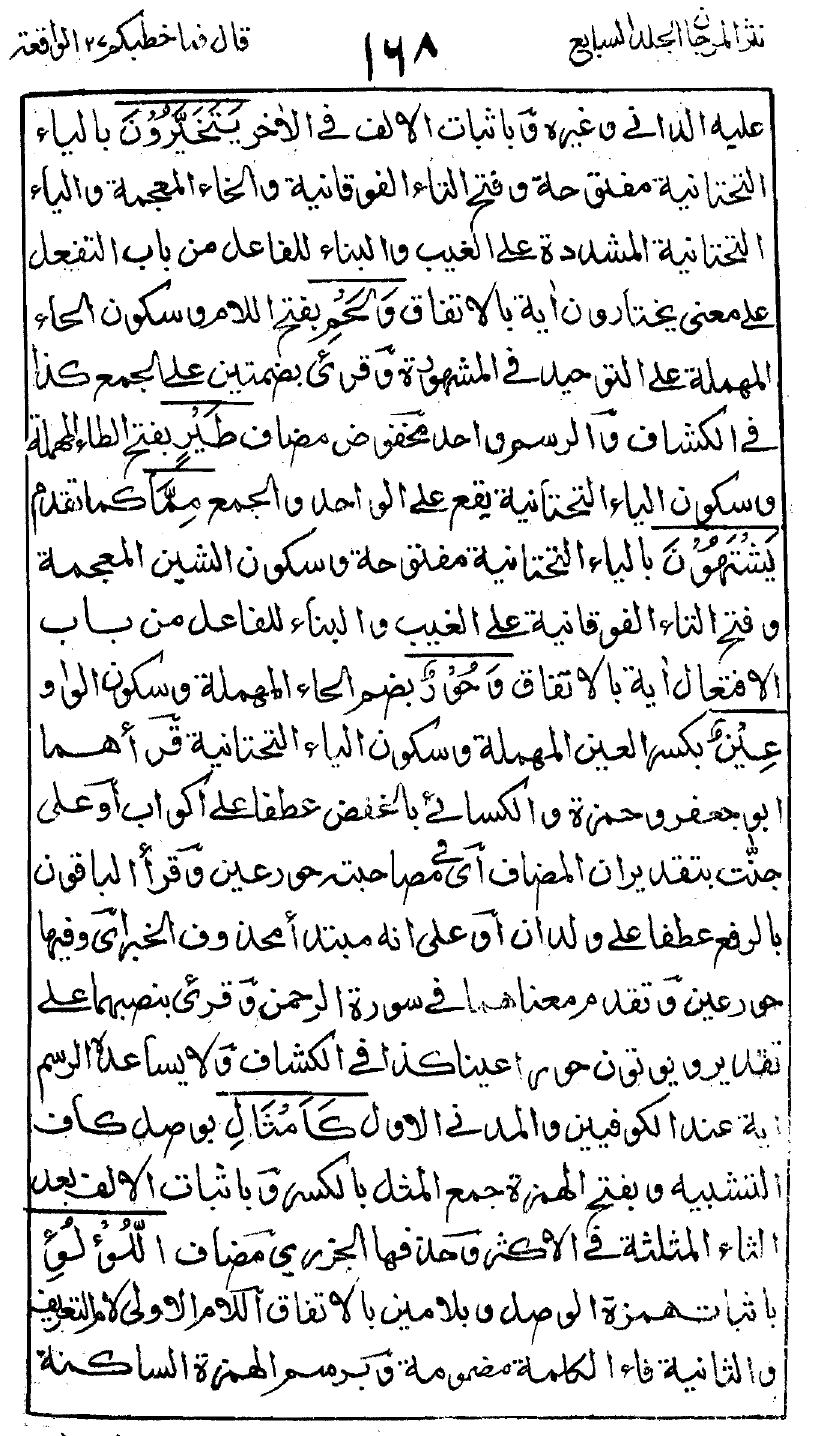 نثر المرجان الجلد السابع ١٦٨ قال فما خطبكم ٢٧ الواقعة
عليه الدانى وغيره وّباثبات الالف فى الاٰخر يَتَخَيَّرُوْنَ بالياء
التحتانية مفتوحة وفتح التاء الفوقانية والخاء المعجمة والياء
التحتانية المشددة على الغيب والبناء للفاعل من باب التفعل
على معنى يختارون اٰية بالاتفاق وَلَحْمِ بفتح اللام وسكون الحاء
المهملة على التوحيد فى المشهورة وّقرئ بضمتين على الجمع كذا
فى الكشاف وّالرسم واحد مخفوض مضاف طَيْرٍ بفتح الطاء المهملة
وسكون الياء التحتانية يقع على الواحد والجمع مِمَّا كما تقدم
يَشْتَهُوْنَ بالياء التحتانية مفتوحة وسكون الشين المعجمة
وفتح التاء الفوقانية على الغيب والبناء للفاعل من باب
الافتعال اٰية بالاتفاق وَحُوْرٌ بضم الحاء المهملة وسكون الواو
عِيْنٌ بكسر العين المهملة وسكون الياء التحتانية قّرأهما
ابو جعفر وحمزة والكسائى بالخفض عطفا على أكواب أو على
جنّٰت بتقدير ان المضاف اىّ فى مصاحبته حور عين وّقرأ الباقون
بالرفع عطفا على ولدان أوّ على انه مبتدأ محذوف الخبر اىّ وفيها
حور عين وّتقدم معناهما فى سورة الرحمن وّقرئ بنصبهما على
تقدير ويوتون حورا عينا كذا فى الكشاف وّلا يساعده الرسم
اٰية عند الكوفيين والمدنى الاول كَاَمْثَالِ بوصل كاف
التشبيه وبفتح الهمزة جمع المثل بالكسر وّباثبات الالف بعد
الثاء المثلثة فى الاكثر وّحذفها الجزرى مّضاف اللُّؤْلُؤِ
باثبات همزة الوصل وبلامين بالاتفاق اّللام الاولى لام التعريف
والثانية فاء الكلمة مضمومة وّبرسم الهمزة الساكنة